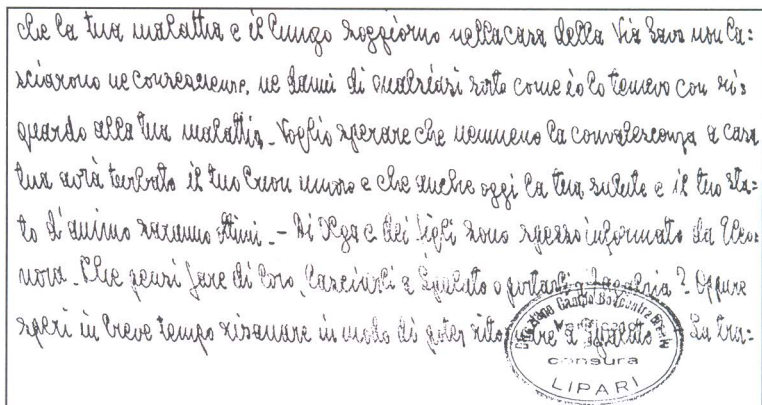 che la tua malattia e il lungo soggiorno nella casa della Via Sava non la=
sciarono ne conseguenze, ne danni di qualsiasi sorte come io lo temevo con ri=
guardo alla tua malattia. Voglio sperare che nemmeno la convalescenza a casa
tua avrà turbato il tuo buon umore e che anche oggi la tua salute e il tuo sta=
to d'animo saranno ottimi. - Di Olga e dei figli sono spesso informato da Eleo=
nora. Che pensi fare di loro, lasciarli a Spalato o portarli a ? Oppure
speri in breve tempo risanare in modo di poter ritornare a Spalato La tra=
censura
LIPARI